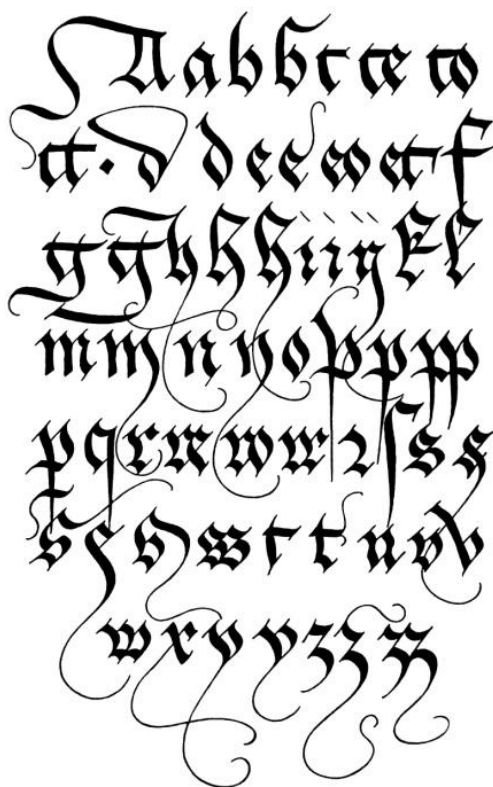 A a b b c ce co
ct · d d e e eo et f
g g h h h i i ij k l
m m n n o p p pp
p q r re ro rr ꝛ ſ s s
s s ss t t u v v
w x y y z z zz